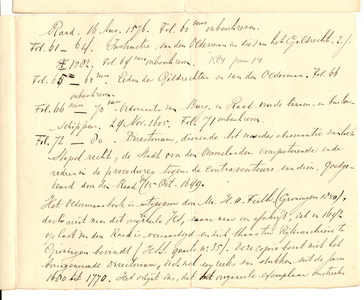 Raad. 16 Aug. 1576. Fol. 60 vso onbeschreven.
Fol. 61 – 64. Instructie van den Olderman en die van het Gildrecht. 2 f.
1882. Fol. 64 vso onbeschreven.
Fol. 65 – 65 vso. Eeden der Gildrechten en van den Olderman. Fol. 66
onbeschreven.
Fol. 66 vso – 70 vso Ordonnantie van Burg. en Raad voor de binnen- en buiten-
Schippers. 29 Nov. 1605. Fol. 71 onbeschreven.
Fol. 72 – 80. Directorium, dienende het nodes observantie van het
Stapelrecht, de Stadt over den Ommelanden competerende ende
reden in de procedures tegen de Contraventeurs van dien. Goedge-
keurd door den Raad 5/15 Oct. 1649.
Het Oldermanboek is uitgegeven door Mr. H. O. Feith (Groningen 1850),
doch niet naar dit originele Hs., maar naar een afschrift, dat in 1692
op last van den Raad is vervaardigd en zich thans ter Rijksarchieve te
Groningen bevindt (Hss. quarto nº 35). Deze copie bevat niet het
bovengenoemde Directorium, doch ook een reeks van stukken uit de jaren
1600 tot 1770. Het schijnt dus, dat het originele exemplaar